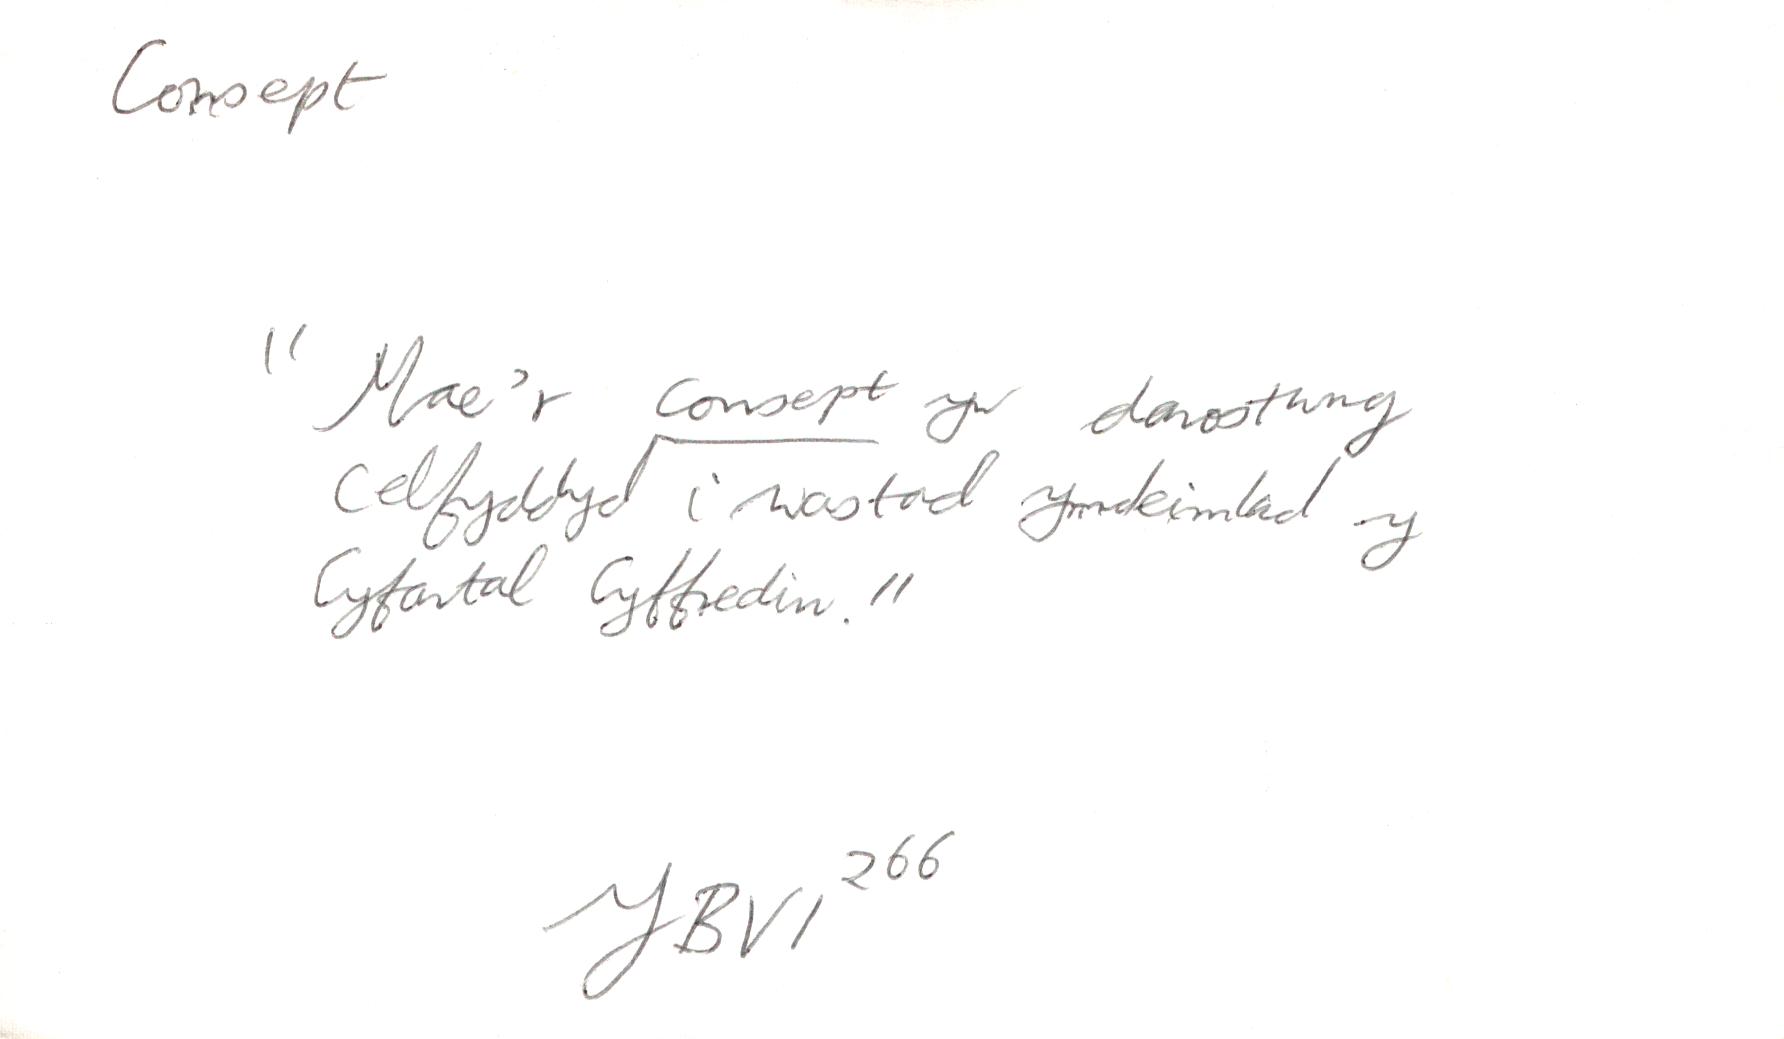 Consept
"Mae'r consept yw darostwng
Celfyddyd i wastad ymdeimlad y
Cyfartal Cyffredin."
YBVI 266